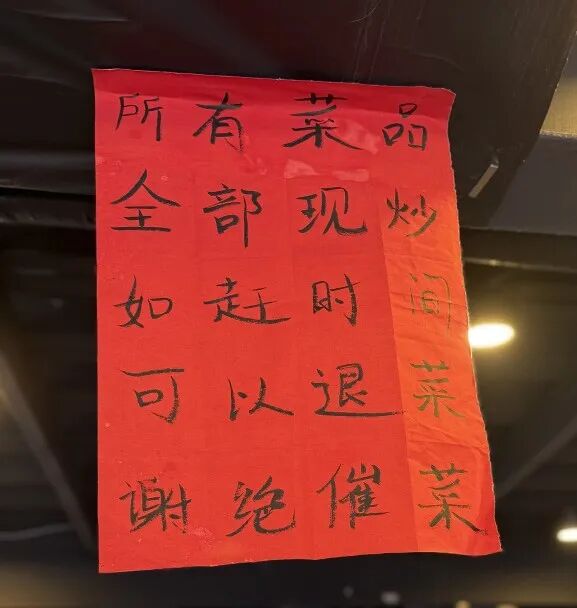 所有菜品
全部现炒
如赶时间
可以退菜
谢绝催菜